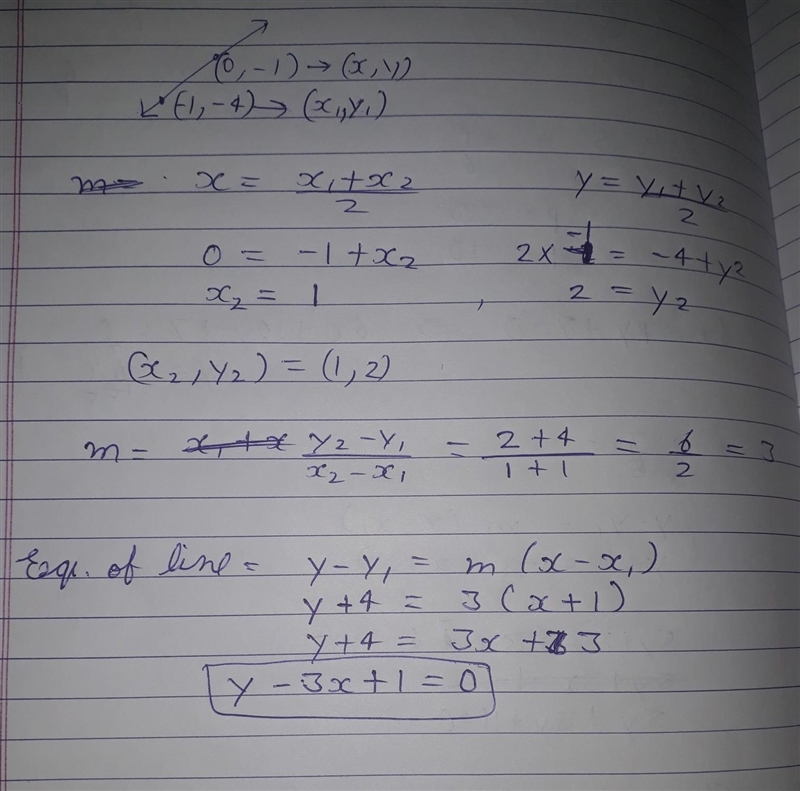 (0, -1) → (x, y)
(-1, -4) → (x₁, y₁)
m= x = (x₁ + x₂)/2 y = (y₁ + y₂)/2
0 = -1 + x₂ 2 x -1 = -4 + y2
x₂ = 1 , 2 = y₂
(x₂, y₂) = (1, 2)
m = x₁ + x (y₂ - y₁)/(x₂ - x₁) = (2 + 4)/(1 + 1) = 6/2 = 3
Equ. of line = y - y₁ = m (x - x₁)
y + 4 = 3 (x + 1)
y + 4 = 3x + 3
y - 3x + 1 = 0